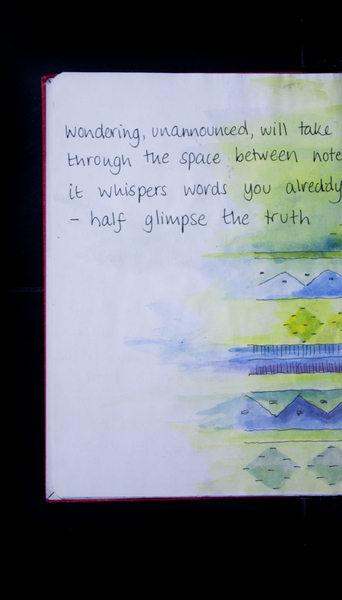 Wondering, unannounced, will take
through the space between note
it whispers words you alreddy
- half glimpse the truth